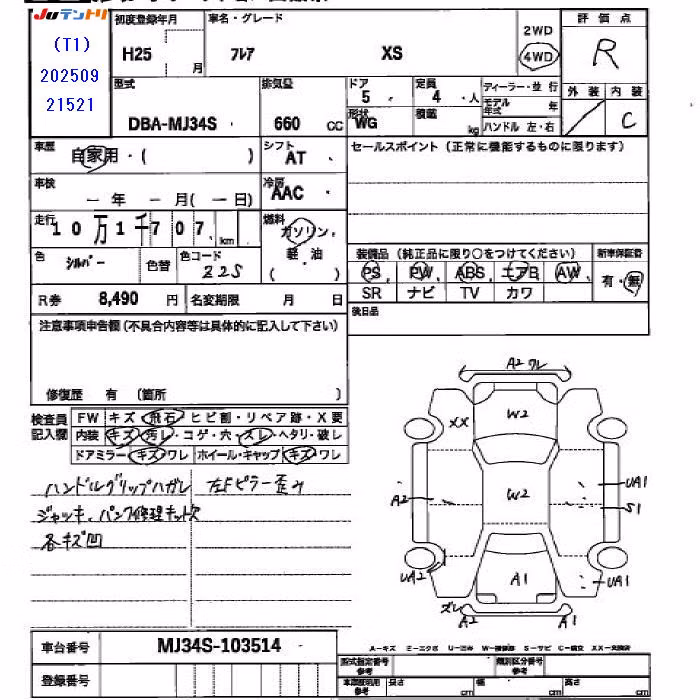 JUテントリ
(T1)
202509
21521
初度登録年月
H25
月
車名・グレード
フレア XS
2WD
4WD
評価点
R
外装 内装
C
型式
DBA-MJ34S
排気量
660 CC
ドア
5
形状
WG
定員
4 ・人
積載
kg
ディーラー・並 行
モデル年式 年
ハンドル 左・右
車歴
自家用・( )
シフト
AT
セールスポイント (正常に機能するものに限ります)
車検
ー 年 ー 月(ー日)
冷房
AAC
走行
10万1千707 km
燃料
ガソリン
軽・油
( )
色
シルバー
色替
色コード
Z2S
装備品 (純正品に限り○をつけてください)
新車保証書
PS PW ABS エアB AW
有・無
SR ナビ TV カワ
R券 8,490 円
名変期限 月 日
後日品
注意事項申告欄 (不具合内容等は具体的に記入して下さい)
修復歴 有 (箇所 )
検査員記入欄
FW キズ・飛石・ヒビ割・リペア跡・X要
内装 キズ・汚レ・コゲ・穴・スレ・ヘタリ・破レ
ドアミラー キズ・ワレ ホイール・キャップ キズ・ワレ
ハンドルグリップハガレ 左Fピラー歪み
ジャッキ、パンク修理キット欠
各キズ凹
A2 ワレ
XX
W2
A2
W2
UA1
S1
UA2
A1
UA1
ズレ
A2
A1
車台番号 MJ34S-103514
登録番号
A-キズ E-エクボ U-凹み W-補修跡 S-サビ C-腐食 XX-交換済
型式指定番号 参考
類別区分番号 参考
車庫証明用 参考
長さ cm
幅 cm
高さ cm